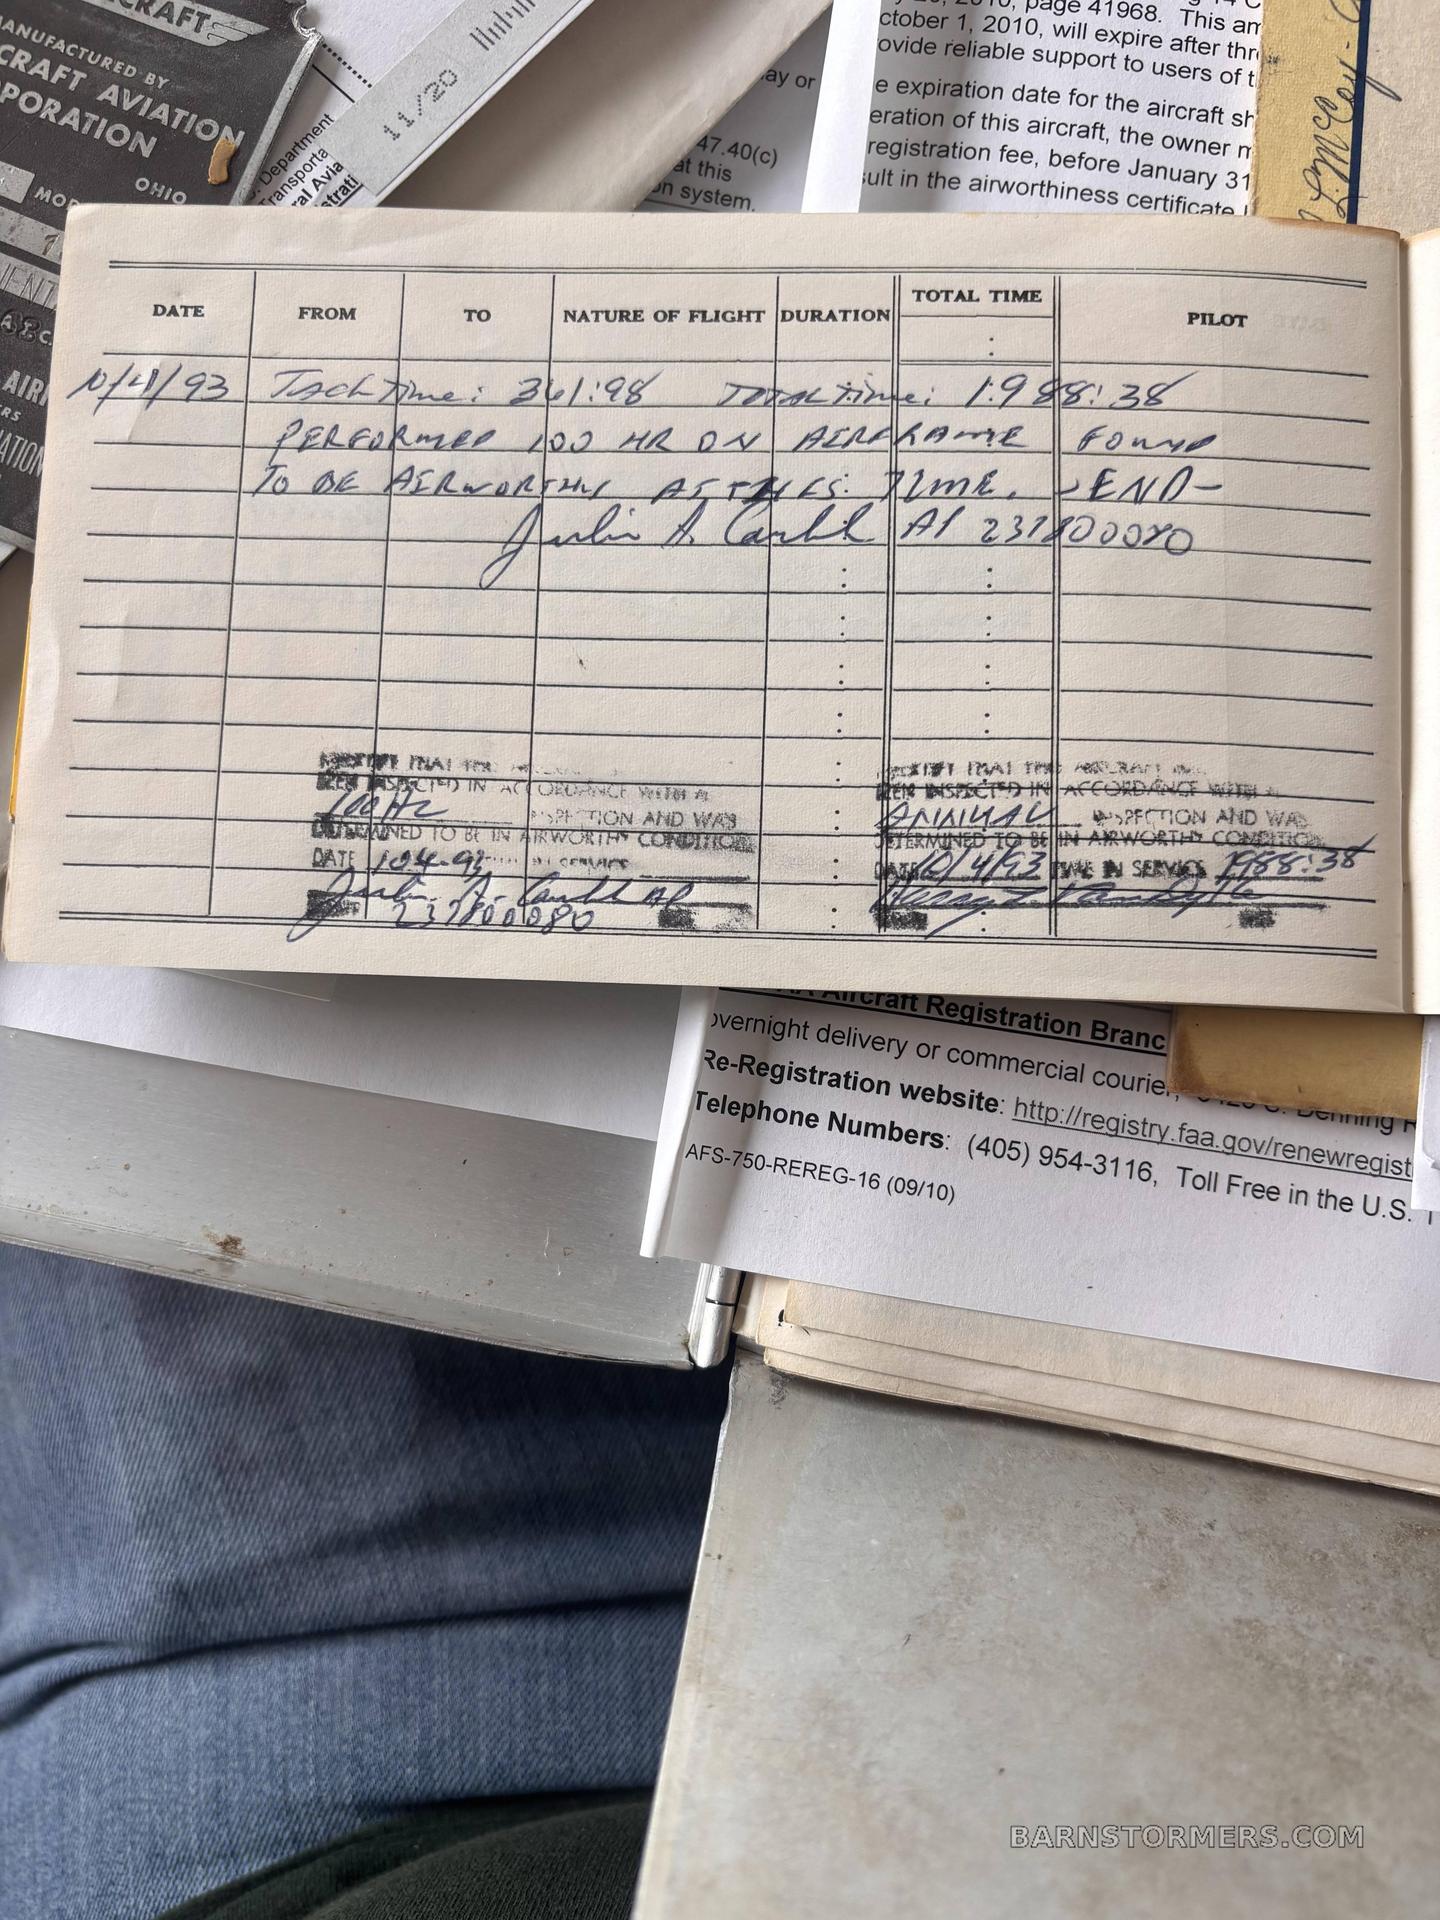 CRAFT
MANUFACTURED BY
CRAFT AVIATION
PORATION
OHIO
11/20
Department
Transporta
ral Avia
strati
ay or
47.40(c)
at this
on system.
2010, page 41968. This am
ctober 1, 2010, will expire after thr
ovide reliable support to users of t
e expiration date for the aircraft sh
eration of this aircraft, the owner m
registration fee, before January 31
sult in the airworthiness certificate
McCoy
DATE FROM TO NATURE OF FLIGHT DURATION TOTAL TIME PILOT
10/4/93 Tach Time: 361:98 TOTAL Time: 1988:38
PERFORMED 100 HR ON AIRFRAME FOUND
TO BE AIRWORTHY AT THIS TIME. -END-
Julin A. AP 237800080
THAT THE
BEEN INSPECTED IN ACCORDANCE WITH A
100 Hr INSPECTION AND WAS
DETERMINED TO BE IN AIRWORTHY CONDITION
DATE 10-4-93 IN SERVICE
Julin A. AP
237800080
THAT THE AIRCRAFT
BEEN INSPECTED IN ACCORDANCE WITH A
ANNUAL INSPECTION AND WAS
DETERMINED TO BE IN AIRWORTHY CONDITION
DATE 10/4/93 TIME IN SERVICE 1988:38
Aircraft Registration Branc
overnight delivery or commercial courier,
Re-Registration website: http://registry.faa.gov/renewregist
Telephone Numbers: (405) 954-3116, Toll Free in the U.S.
AFS-750-REREG-16 (09/10)
BARNSTORMERS.COM